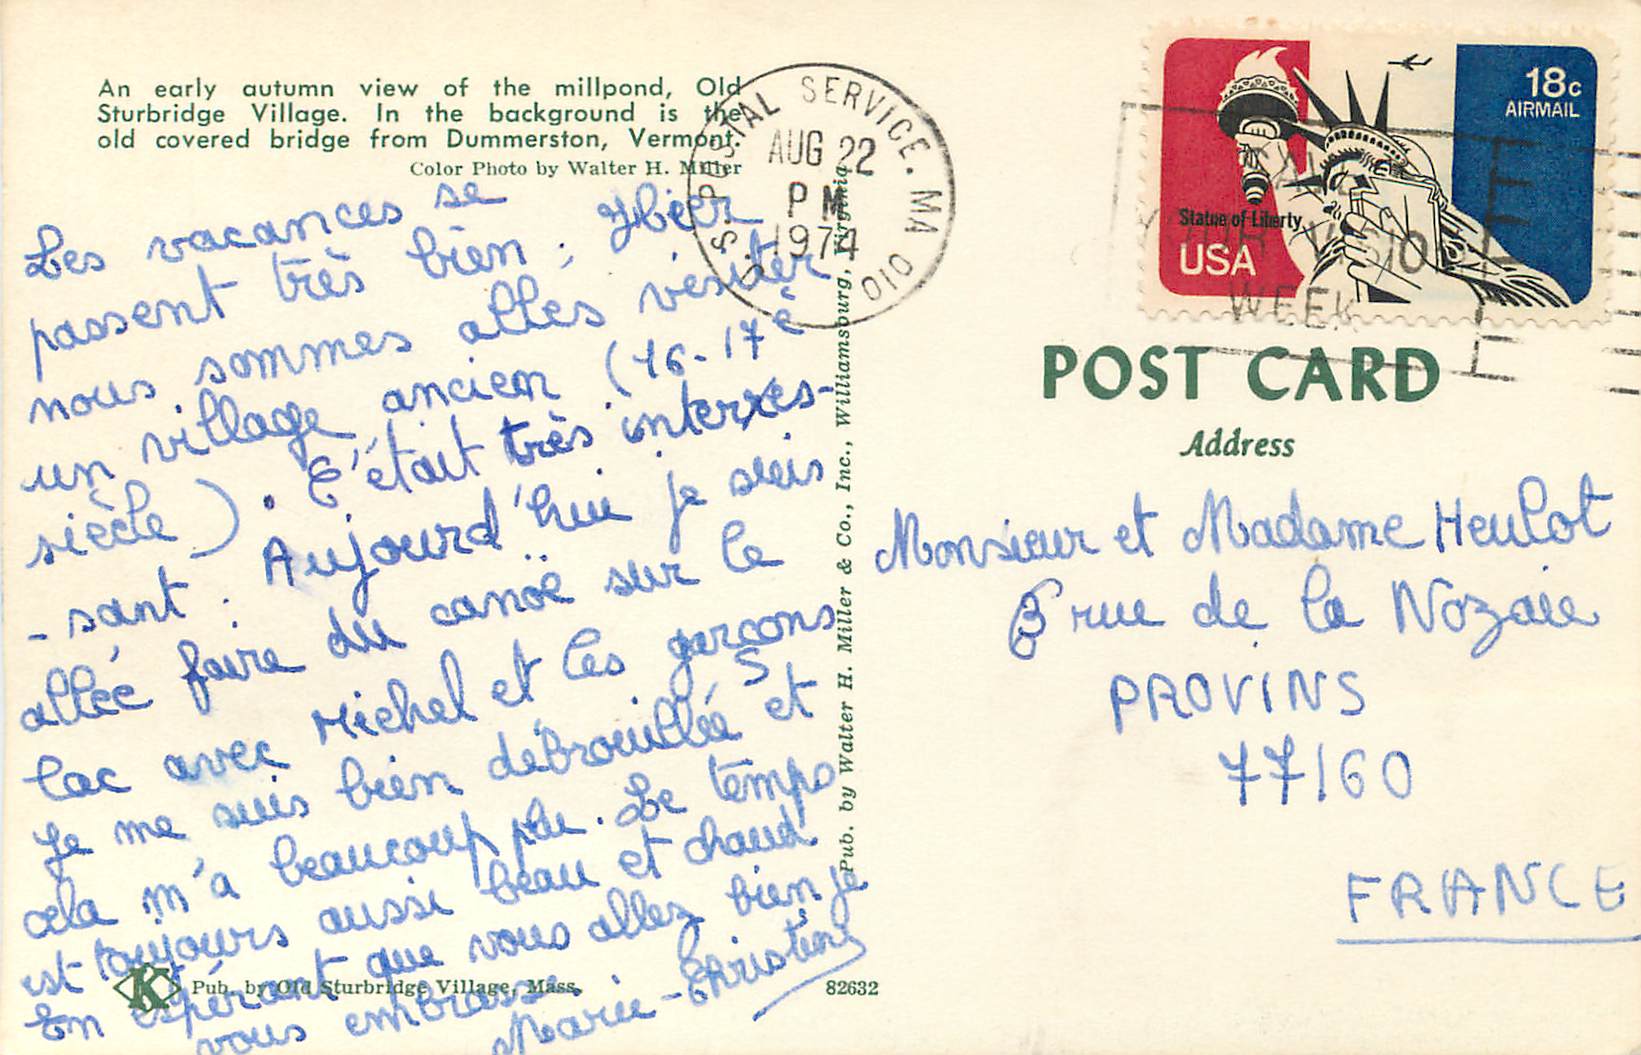 An early autumn view of the millpond, Old
Sturbridge Village. In the background is the
old covered bridge from Dummerston, Vermont.
Color Photo by Walter H. Miller
Les vacances se
passent très bien ; Hier
nous sommes allés visiter
un village ancien (16-17è
siècle). C'était très interes-
-sant : Aujourd'hui je suis
allée faire du canoë sur le
lac avec Michel et les garçons
Je me suis bien débrouillée et
cela m'a beaucoup plu. Le temps
est toujours aussi beau et chaud
En espérant que vous allez bien je
vous embrasse.
Marie-Christine
Pub. by Old Sturbridge Village, Mass.
K
82632
Pub. by Walter H. Miller & Co., Inc., Williamsburg, Virginia
U.S. POSTAL SERVICE. MA 010
AUG 22
PM
1974
18c
AIRMAIL
Statue of Liberty
USA
YOUR VISIO
WEEK
POST CARD
Address
Monsieur et Madame Heulot
rue de la Nozaie
PROVINS
77160
FRANCE